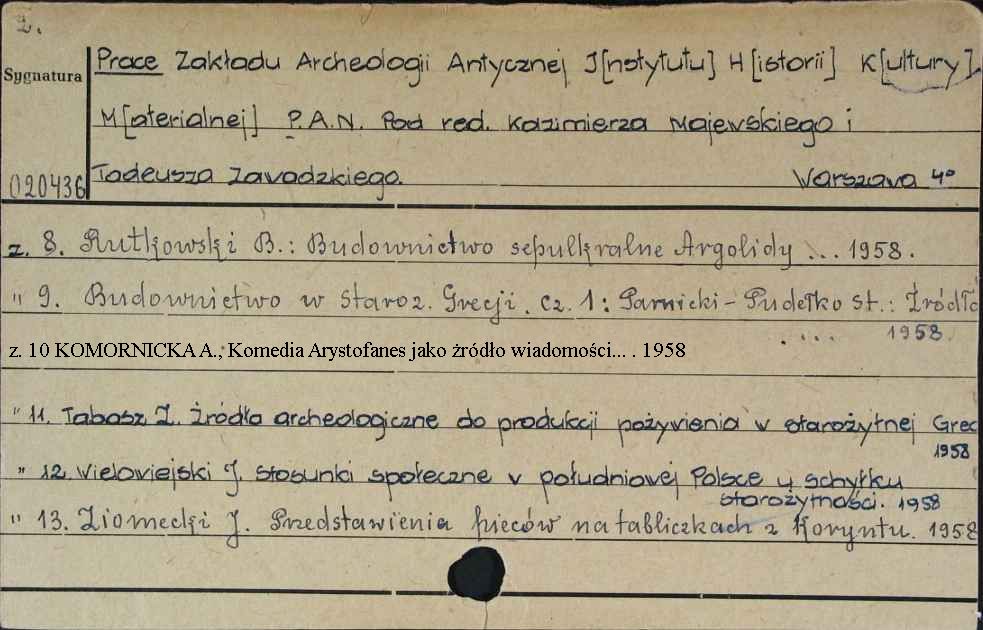 2.
Prace Zakładu Archeologii Antycznej I[nstytutu] H[istorii] K[ultury]
Sygnatura
M[aterialnej] P.A.N. Pod red. Kazimierza Majewskiego i
020436
Tadeusza Zawadzkiego. Warszawa 4º
z. 8. Rutkowski B.: Budownictwo sepulkralne Argolidy ... 1958.
" 9. Budownictwo w staroż. Grecji. Cz. 1: Parnicki-Pudełko St.: Źródła
.... 1958.
z. 10 KOMORNICKA A., Komedia Arystofanes jako żródło wiadomości... . 1958
" 11. Tabasz Z. Źródła archeologiczne do produkcji pożywienia w starożytnej Grec
1958
" 12. Wielowiejski J. Stosunki społeczne w południowej Polsce u schyłku
starożytności. 1958
" 13. Ziomecki J. Przedstawienia pieców na tabliczkach z Koryntu. 1958